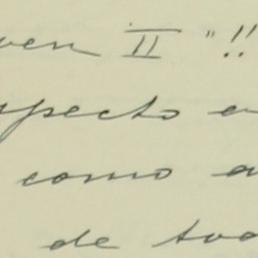 ven II "!!
specto a
como a
de tod